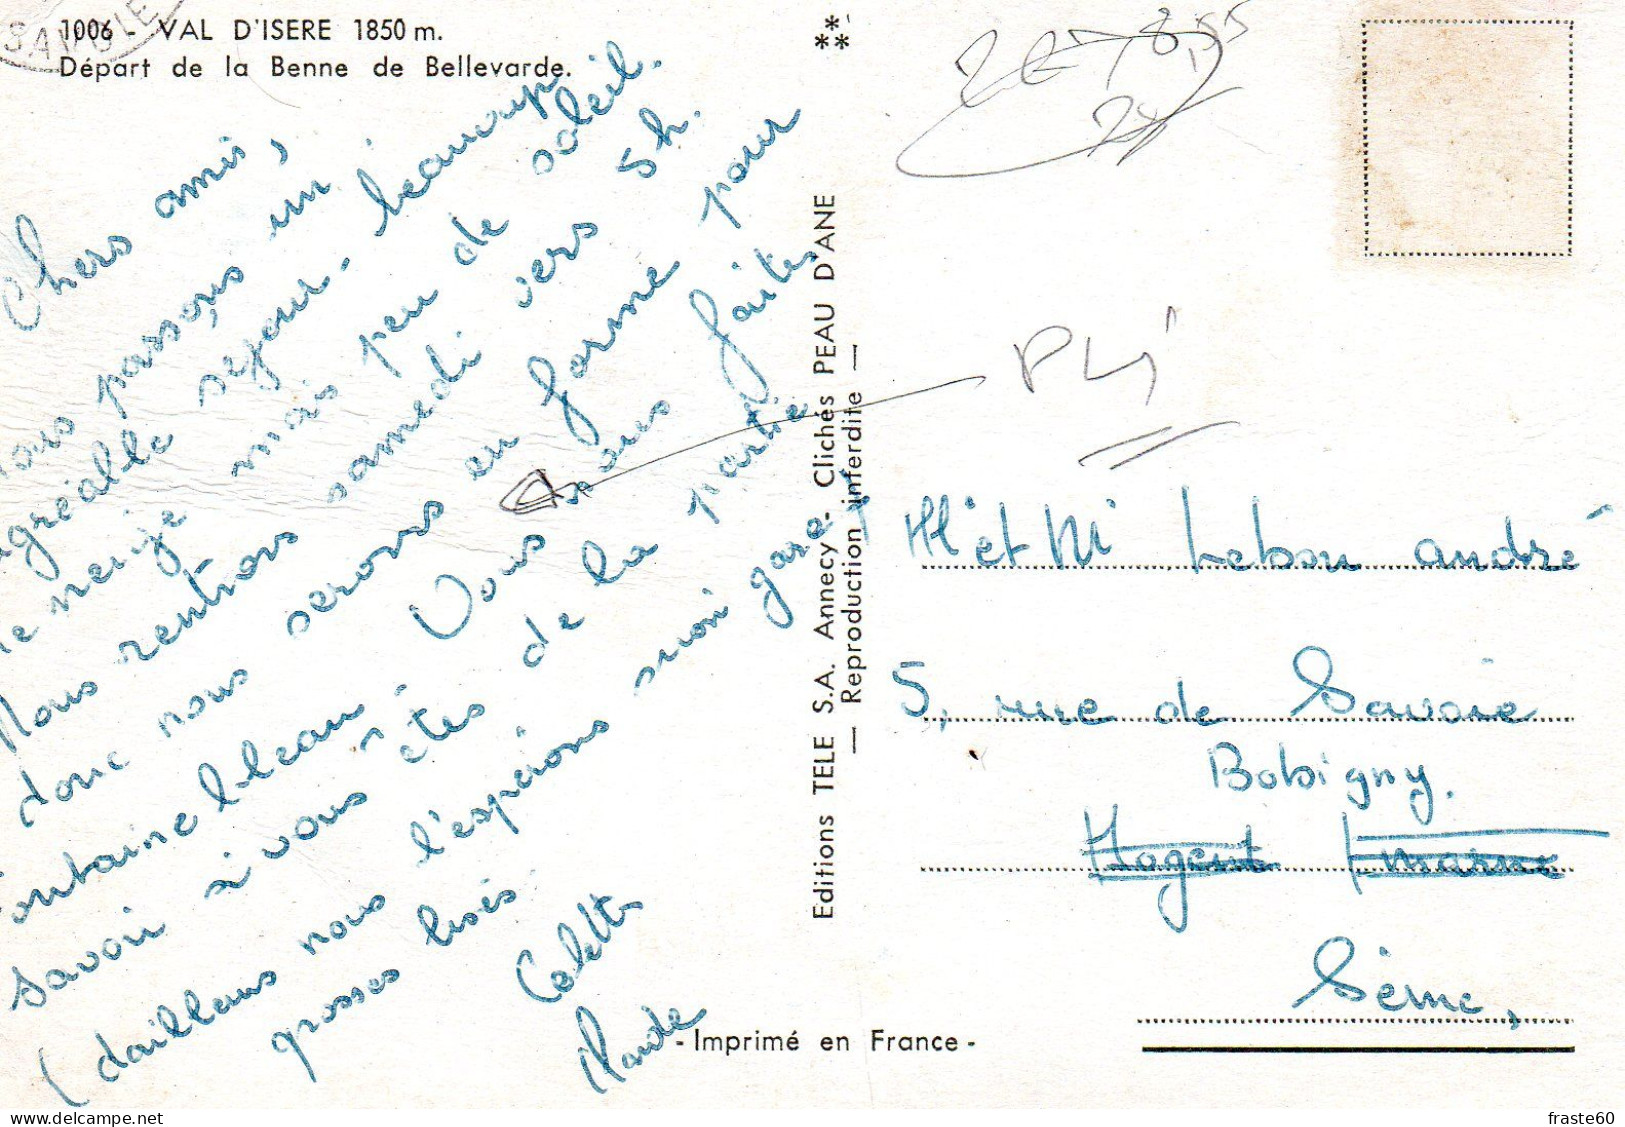 SAVOIE
1006 - VAL D'ISERE 1850 m.
Départ de la Benne de Bellevarde.
Chers amis,
Nous passons un
agréable séjour. beaucoup
de neige mais peu de soleil.
Nous rentrons samedi vers 5h.
donc nous serons en forme pour
Fontainebleau. Vous nous faites
savoir si vous êtes de la partie
(dailleurs nous l'espérions sinon gare!)
grosses bises
Colette
Claude
Editions TELE S.A. Annecy - Clichés PEAU D'ANE
— Reproduction interdite —
PLI
M et Me Lebon andré
5, rue de Savoie
Bobigny.
Nogent s/marne
Seine,
- Imprimé en France -
fraste60